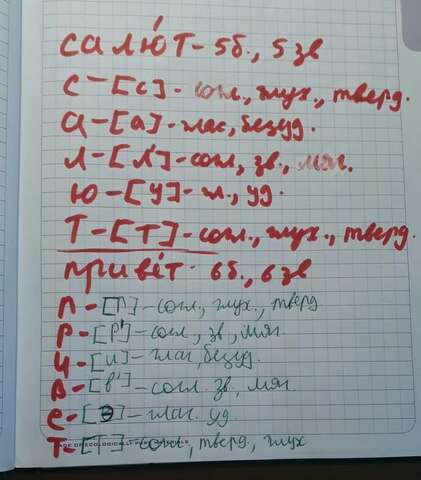 салю́т - 5б., 5 зв
с - [с] - согл., глух., тверд.
а - [а] - глас, безуд.
л - [л'] - согл., зв., мяг.
ю - [у] - гл., уд.
т - [т] - согл., глух., тверд.
приве́т - 6б., 6 зв
п - [п] - согл, глух., тверд
р - [р'] - согл, зв, мяг.
и - [и] - глас, безуд.
в - [в'] - согл. зв., мяг.
е - [э] - глас. уд
т - [т] - согл., тверд., глух